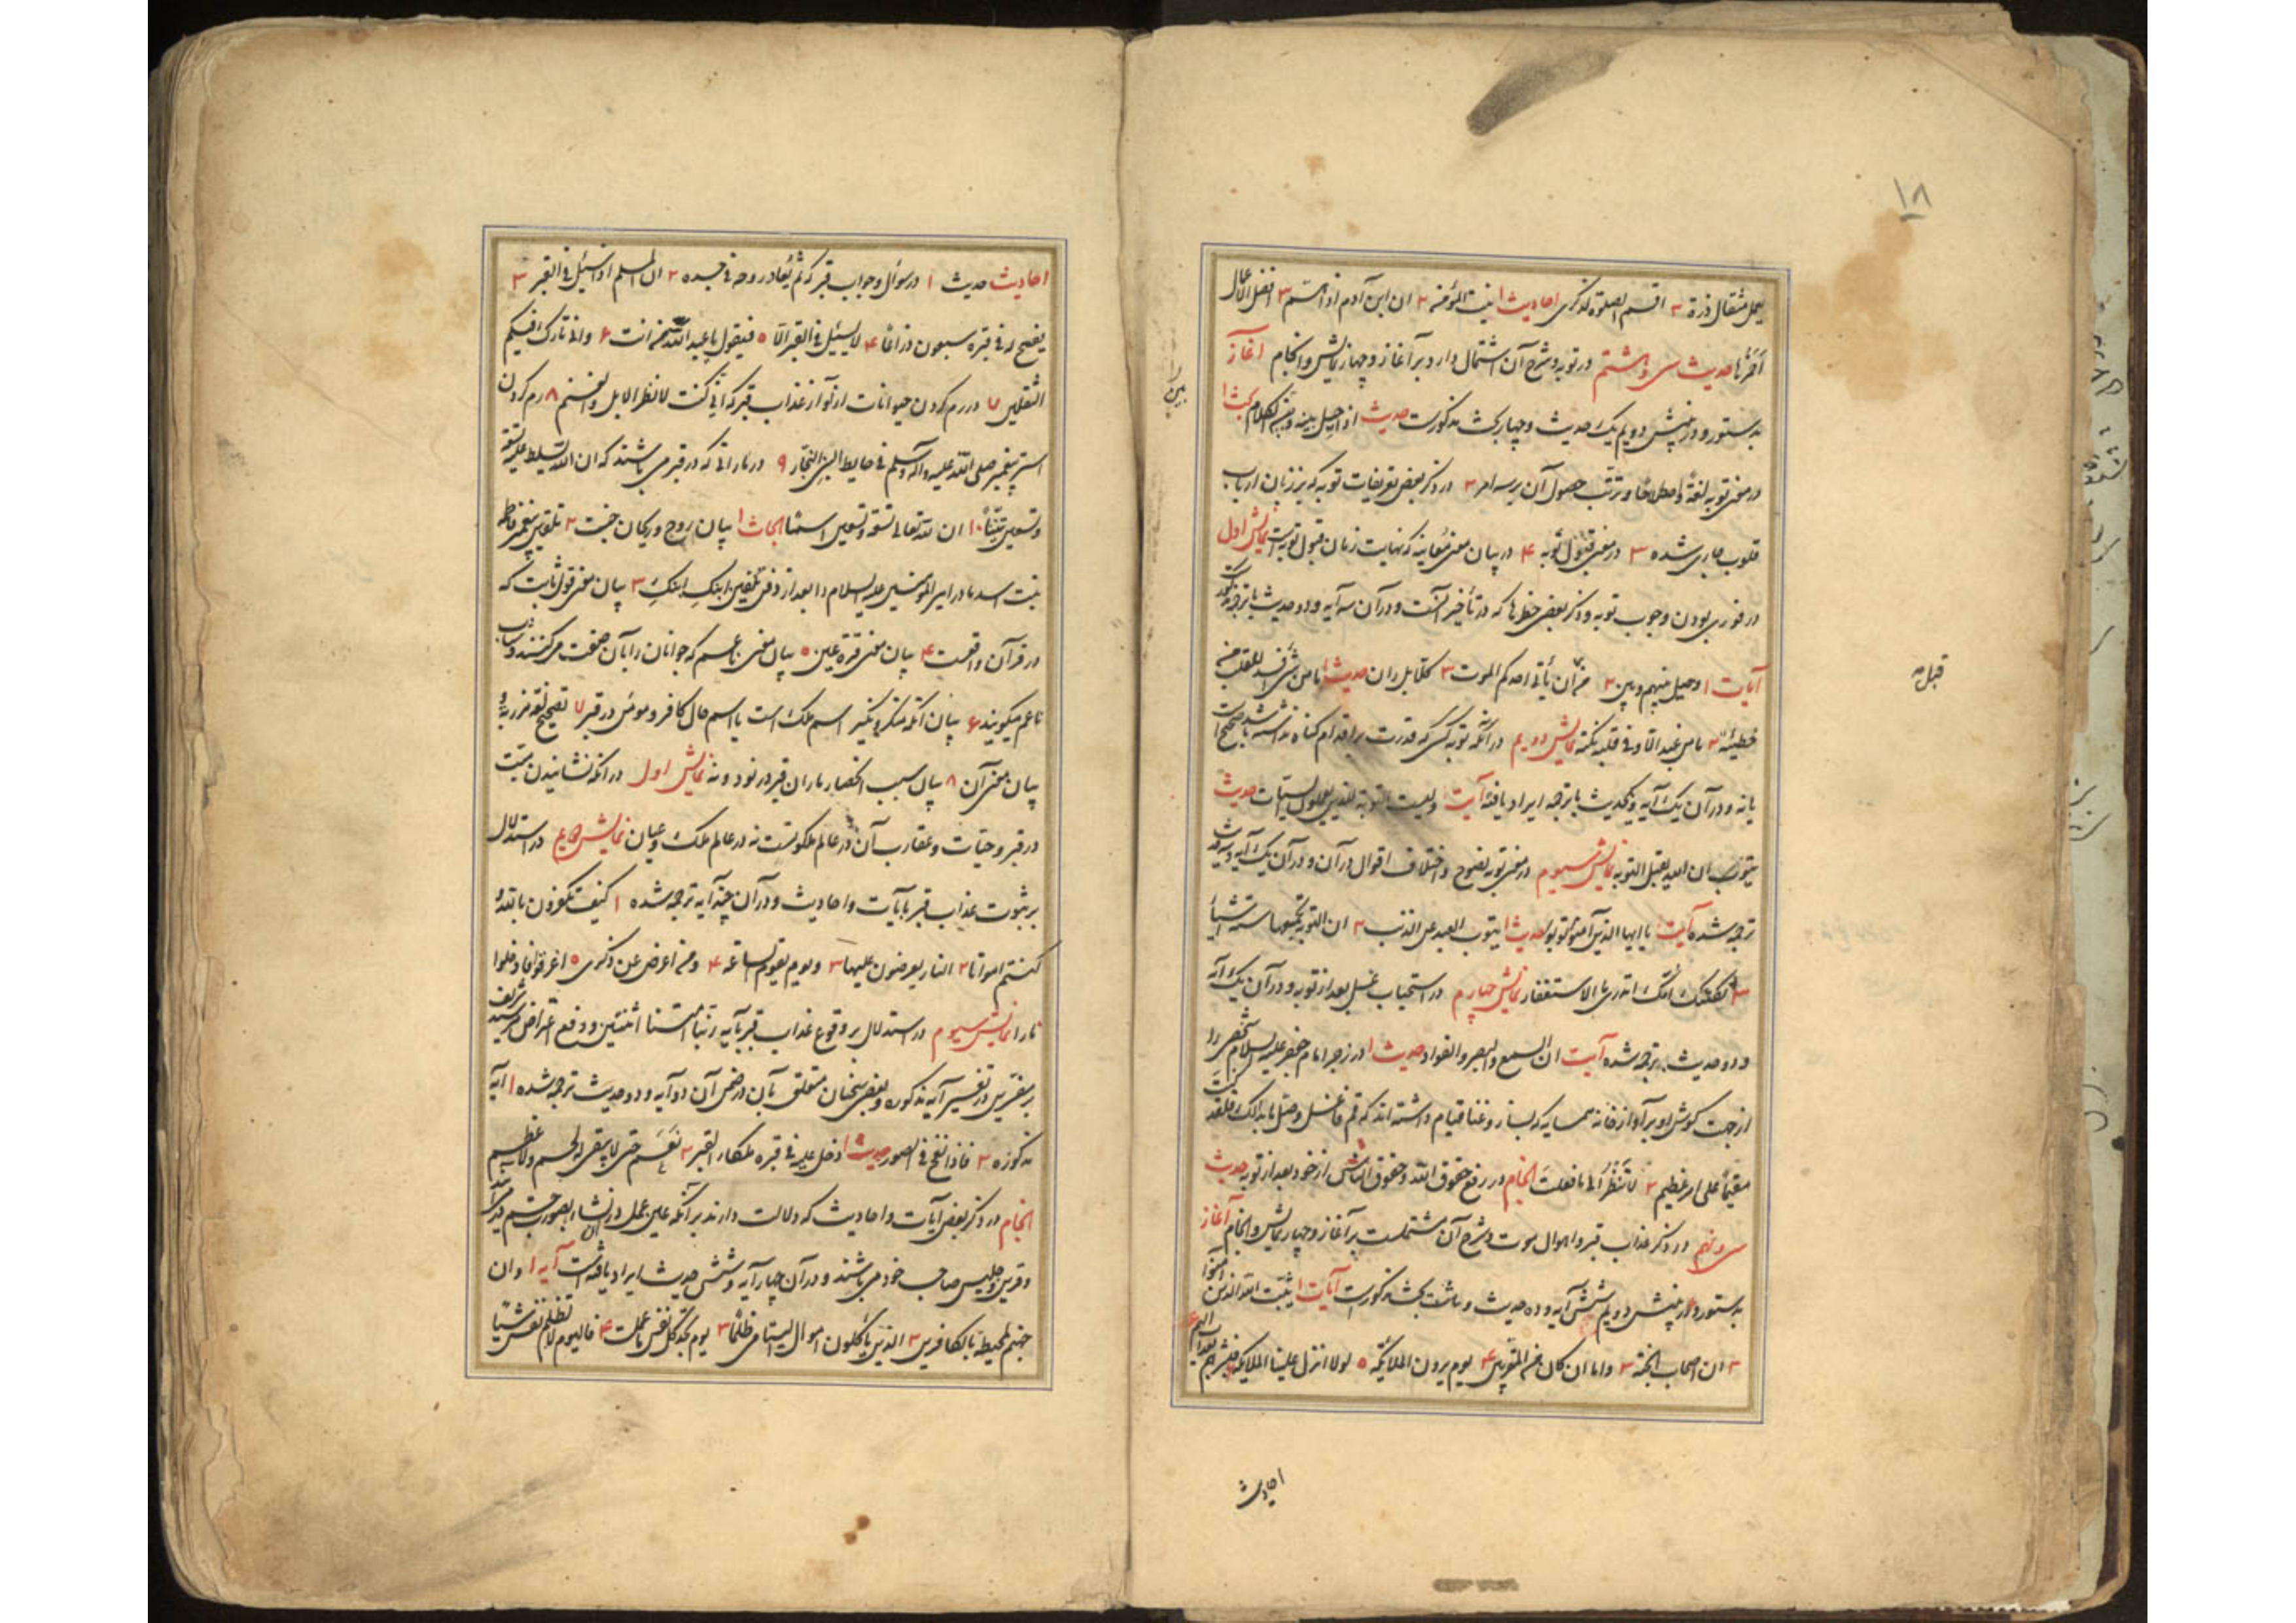 ۱۸
یعمل مثقال ذرة ۳ اقم الصلوة لذکری احادیث ۱ نیت المؤمن ۲ ان ابن آدم اذا هم ۳ افضل الاعمال
احمزها حدیث سی و هشتم در توبه و شرح آن اشتمال دارد بر آغاز و چهار نمایش و انجام آغاز
بدستور و در پیش دویم یک حدیث و چهار بحث مذکورست حدیث ان اجل بینه و بین الکلام بحث ۱
در معنی توبه لغة و اصطلاحا و ترتب حصول آن بر سه امر ۲ در ذکر بعض تعریفات توبه که بر زبان ارباب
قلوب جاری شده ۳ در معنی قبول توبه ۴ در بیان معنی معاینه که نهایت زمان قبول توبه است نمایش اول
در فوری بودن وجوب توبه و ذکر بعض خطرها که در تأخیر آنست و در آن سه آیه و دو حدیث با ترجمه
آیات ۱ و حیل بینهم و بین ۲ من قبل ان یأتی احدکم الموت ۳ کلا بل ران حدیث ۱ ما من شئ افسد للقلب من
خطیئة ۲ ما من عبد الا و فی قلبه نکتة نمایش دویم در آنکه توبه کسی که قدرت بر اقدام گناه نداشته باشد صحیح است
یا نه و در آن یک آیه و یکحدیث با ترجمه ایراد یافته آیت ولیست التوبة للذین یعملون السیئات حدیث
یتوب ان الله یقبل التوبه نمایش سیوم در معنی توبه نصوح و اختلاف اقوال در آن و در آن یک آیه و سه حدیث
ترجمه شده آیت یا ایها الذین آمنوا توبوا حدیث ۱ یتوب العبد عن الذنب ۲ ان التوبة یجمعها ستة اشیاء
۳ ثکلتک امک اتدری ما الاستغفار نمایش چهارم در استحباب غسل بعد از توبه و در آن یک آیه
و دو حدیث ترجمه شده آیت ان السمع و البصر و الفواد حدیث ۱ در زجر امام جعفر علیه السلام شخصی را
از جهت گوش او بر آواز خانه همسایه که بساز و غنا قیام داشته اند که قم فاغسل و صل ما بدا لک فلقد کنت
مقیما علی امر عظیم ۲ لا تنظر الی ما فعلت انجام در رفع حقوق الله و حقوق الناس از خود بعد از توبه حدیث
سی و نهم در ذکر عذاب قبر و اهوال موت و شرح آن مشتملست بر آغاز و چهار نمایش و انجام آغاز
بدستور و در پیش دویم شش آیه و ده حدیث و هشت بحث مذکورست آیات ۱ یثبت الله الذین آمنوا
۲ ان اصحاب الجنة ۳ و اما ان کان من المقربین ۴ یوم یرون الملائکه ۵ لولا انزل علینا الملایکه فبشرهم بعذاب الیم
قبل
احادیث
احادیث حدیث ۱ در سوال و جواب قبر که ثم یعاد روحه فی جسده ۲ ان المسلم اذا سئل فی القبر ۳
یفسح له فی قبره سبعون ذراعا ۴ لا یسئل فی القبر الا ۵ فیقول یا عبد الله من انت ۶ و انی تارک فیکم
الثقلین ۷ در رم کردن حیوانات از آواز عذاب قبر که انی کنت لانظر الابل و الغنم ۸ رم کردن
استر پیغمبر صلی الله علیه و آله و سلم فی حایط البنی النجار ۹ در مارانی که در قبر می باشند که ان الله یسلط علیه تسعة
و تسعین تنینا ۱۰ ان لله تعالی تسعة و تسعین اسما ابحاث ۱ بیان روح و ریحان جنت ۲ تلقین پیغمبر فاطمه
بنت اسد مادر امیر المومنین علیه السلام را بعد از دفن تلقین ابنک ابنک ۳ بیان معنی قول ثابت که
در قرآن واقعست ۴ بیان معنی قرة عین ۵ بیان معنی ناعم که جوانان را بآن صفت می کنند و شاب
ناعم میگویند ۶ بیان آنکه منکر و نکیر اسم ملک است یا اسم حال کافر و مومن در قبر ۷ تصحیح لفظ مرزبه و
بیان معنی آن ۸ بیان سبب انحصار ماران قبر در نود و نه نمایش اول در آنکه نشانیدن میت
در قبر و حیات و عقارب آن در عالم ملکوتست نه در عالم ملک و عیان نمایش دویم در استدلال
بر ثبوت عذاب قبر بآیات و احادیث و در آن پنج آیه ترجمه شده ۱ کیف تکفرون بالله و
کنتم امواتا ۲ النار یعرضون علیها ۳ و یوم تقوم الساعة ۴ و من اعرض عن ذکری ۵ اغرقوا فادخلوا
نارا نمایش سیوم در استدلال بر وقوع عذاب قبر بآیه ربنا امتنا اثنتین و دفع اعتراض سید شریف
بر مفسرین در تفسیر آیه مذکوره و بعض سخنان متعلق بآن و در ضمن آن دو آیه و دو حدیث ترجمه شده ۱ آیه
مذکوره ۲ فاذا نفخ فی الصور حدیث ۱ ادخل علیه فی قبره ملکا القبر ۲ نعم حتی لا یبقی له لحم و لا عظم
انجام در ذکر بعض آیات و احادیث که دلالت دارند بر آنکه عین عمل در آن نشاء بصورت جسم در آید
و قرین و جلیس صاحب خود می باشند و در آن چهار آیه و شش حدیث ایراد یافته است آیه ۱ و ان
جهنم لمحیطة بالکافرین ۲ الذین یأکلون اموال الیتامی ظلما ۳ یوم تجد کل نفس ما عملت ۴ فالیوم لا تظلم نفس شیئا